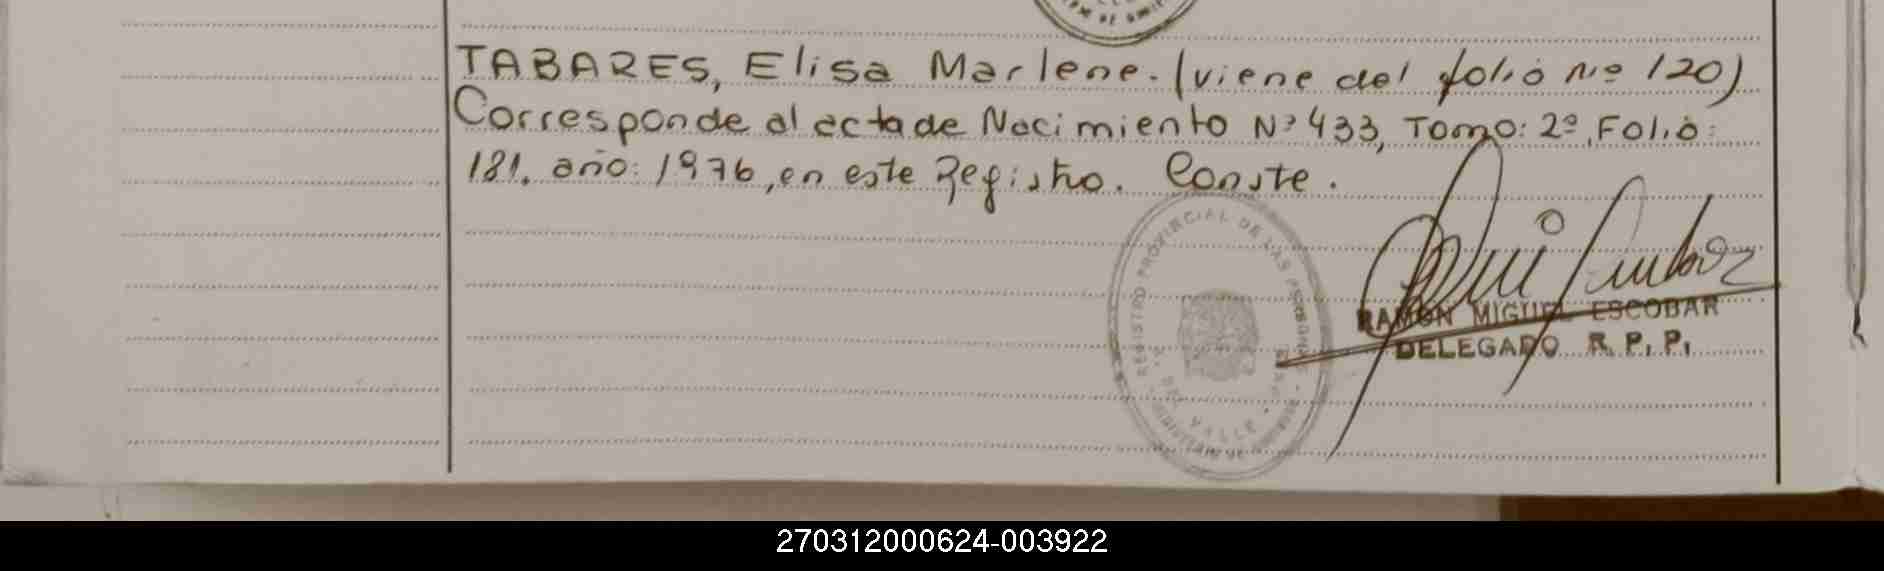 TABARES, Elisa Marlene. (viene del folio Nº 120)
Corresponde al acta de Nacimiento Nº 433, Tomo: 2º, Folio:
181. año: 1976, en este Registro. Conste.
REGISTRO PROVINCIAL DE LAS PERSONAS
VALLE
RAMON MIGUEL ESCOBAR
DELEGADO R. P. P.
270312000624-003922